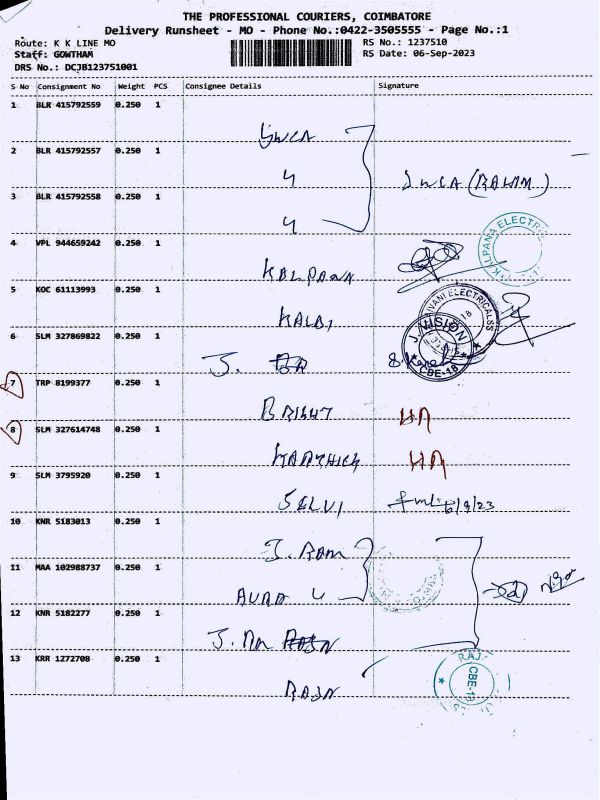 THE PROFESSIONAL COURIERS, COIMBATORE
Delivery Runsheet - MO - Phone No.:0422-3505555 - Page No.:1
Route: K K LINE MO
RS No.: 1237510
Staff: GOWTHAM
RS Date: 06-Sep-2023
DRS No.: DCJB123751001
S No Consignment No Weight PCS Consignee Details Signature
1 BLR 415792559 0.250 1
2 BLR 415792557 0.250 1
3 BLR 415792558 0.250 1
4 VPL 944659242 0.250 1
KALPANA ELECTRIC
KALPANA
5 KOC 61113993 0.250 1
VANI ELECTRICALSS
6 SLM 327869822 0.250 1
J. VISION
CBE-18
J.
7 TRP 8199377 0.250 1
BRIGHT
8 SLM 327614748 0.250 1
KARTHICK
9 SLM 3795920 0.250 1
SELVI 6/9/23
10 KNR 5183013 0.250 1
J. RAM
11 MAA 102988737 0.250 1
12 KNR 5182277 0.250 1
13 KRR 1272708 0.250 1
RAJ
CBE-18
RAJN